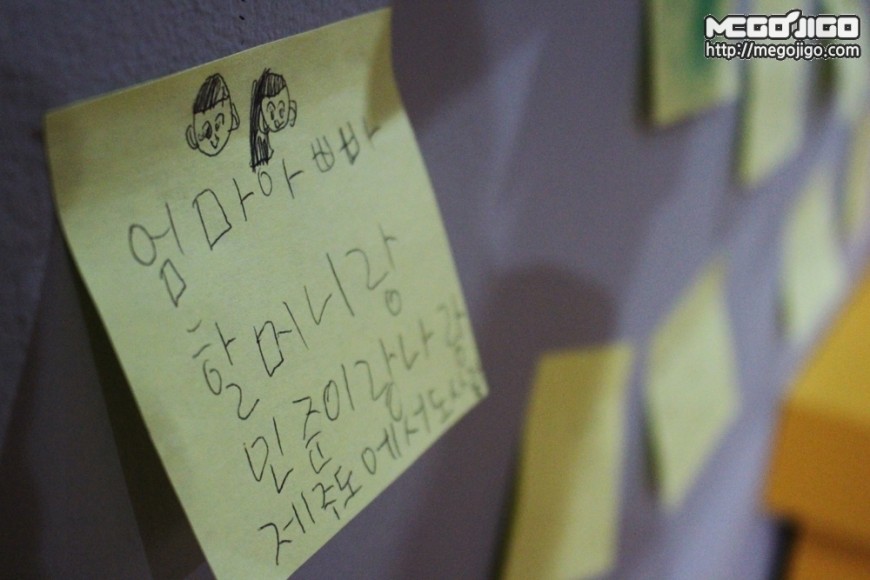 MEGOJIGO
http://megojigo.com
엄마아빠
할머니랑
민준이랑나랑
제주도에서도